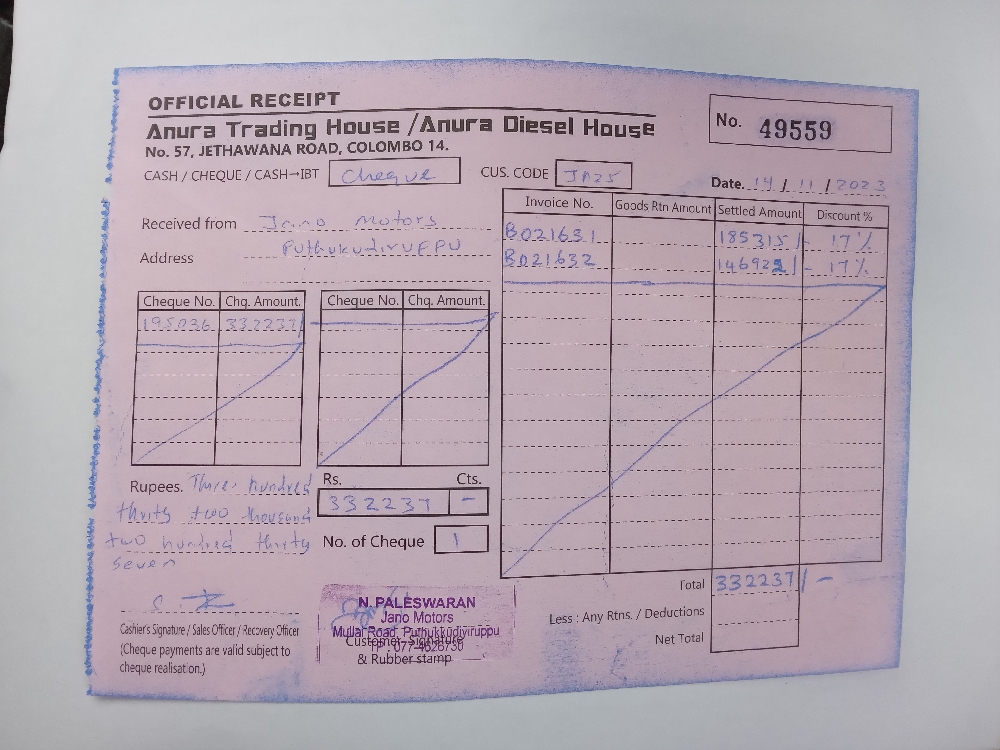 OFFICIAL RECEIPT
Anura Trading House /Anura Diesel House
No. 57, JETHAWANA ROAD, COLOMBO 14.
No. 49559
CASH / CHEQUE / CASH→IBT Cheque
CUS. CODE JA25
Date. 14 / 11 / 2023
Received from Jano Motors
Address Puthukudiruppu
Invoice No. Goods Rtn Amount Settled Amount Discount %
B021631 185315/- 17%
B021632 146922/- 17%
Cheque No. Chq. Amount. Cheque No. Chq. Amount.
195036 332237/
Rupees. Three hundred
thrity two thousand
two hundred thirty
seven
Rs. Cts.
332237 -
No. of Cheque 1
Total 332237/-
Less : Any Rtns. / Deductions
Net Total
Cashier's Signature / Sales Officer / Recovery Officer
(Cheque payments are valid subject to
cheque realisation.)
N.PALESWARAN
Jano Motors
Mullai Road, Puthukkudiyiruppu
TP : 077-4626730
Customer Signature
& Rubber stamp